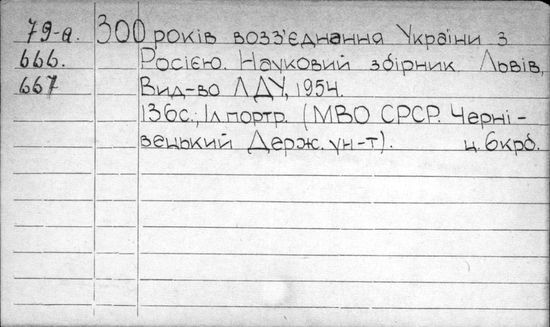 79-а. 300 років возз'єднання України з
666. Росією. Науковий збірник. Львів,
667 Вид-во ЛДУ, 1954.
136с., 1л портр. (МВО СРСР. Черні-
вецький Держ. ун-т). ц. 6крб.